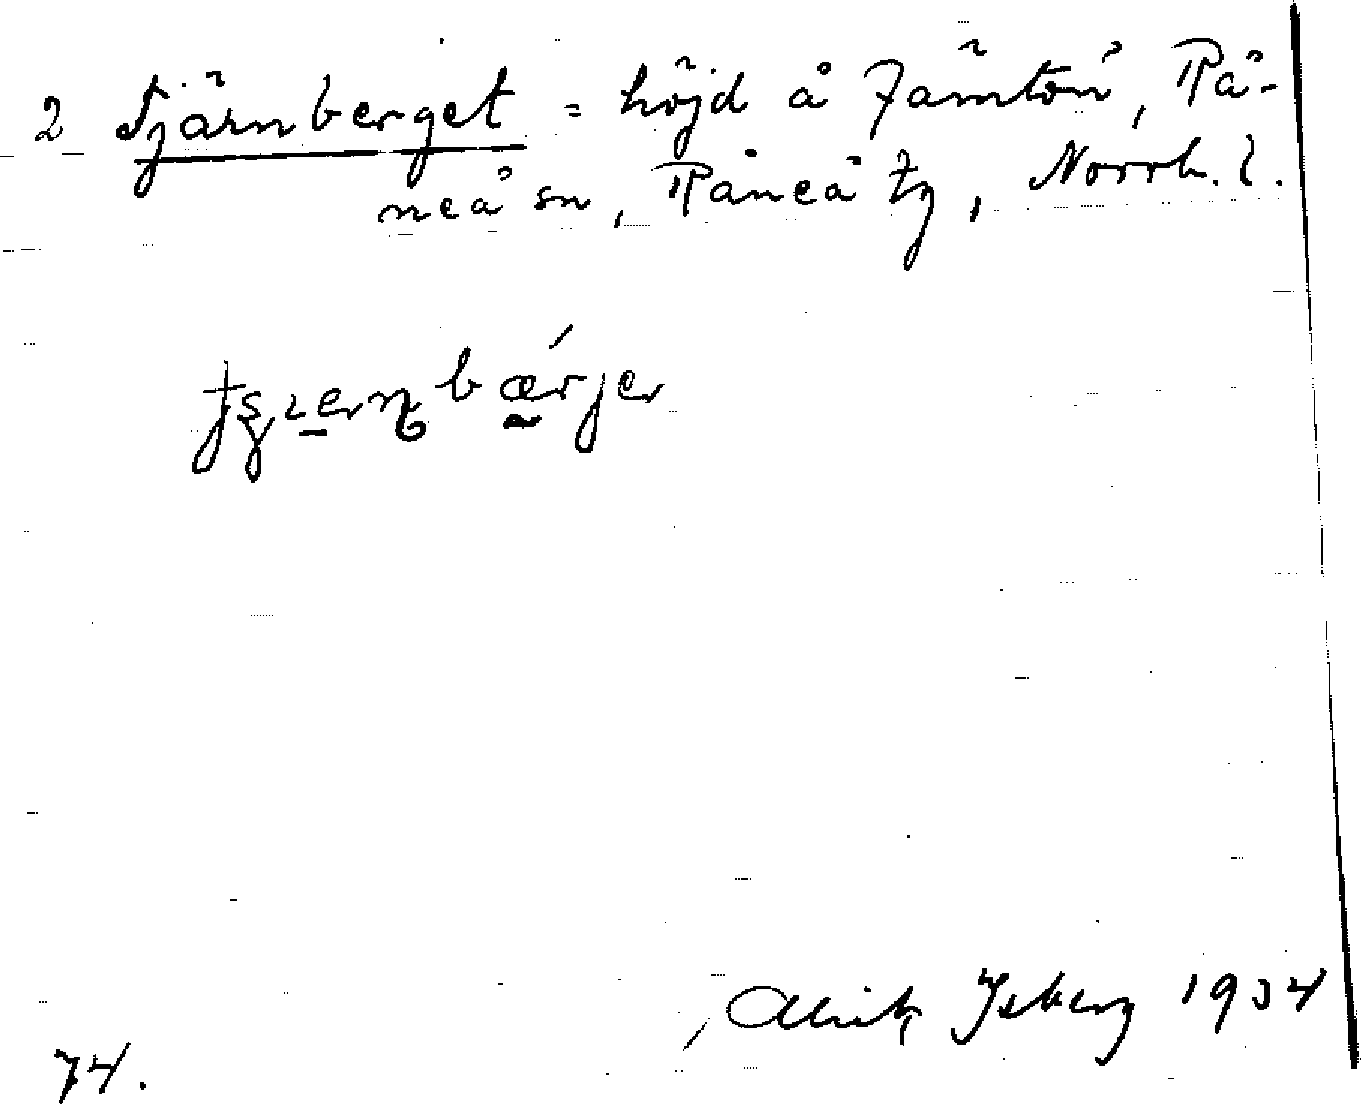 2 Tjärnberget = höjd å Jämtön, Rå-
neå sn, Råneå tg, Norrb. l.
Alrik Isberg 1934
74.